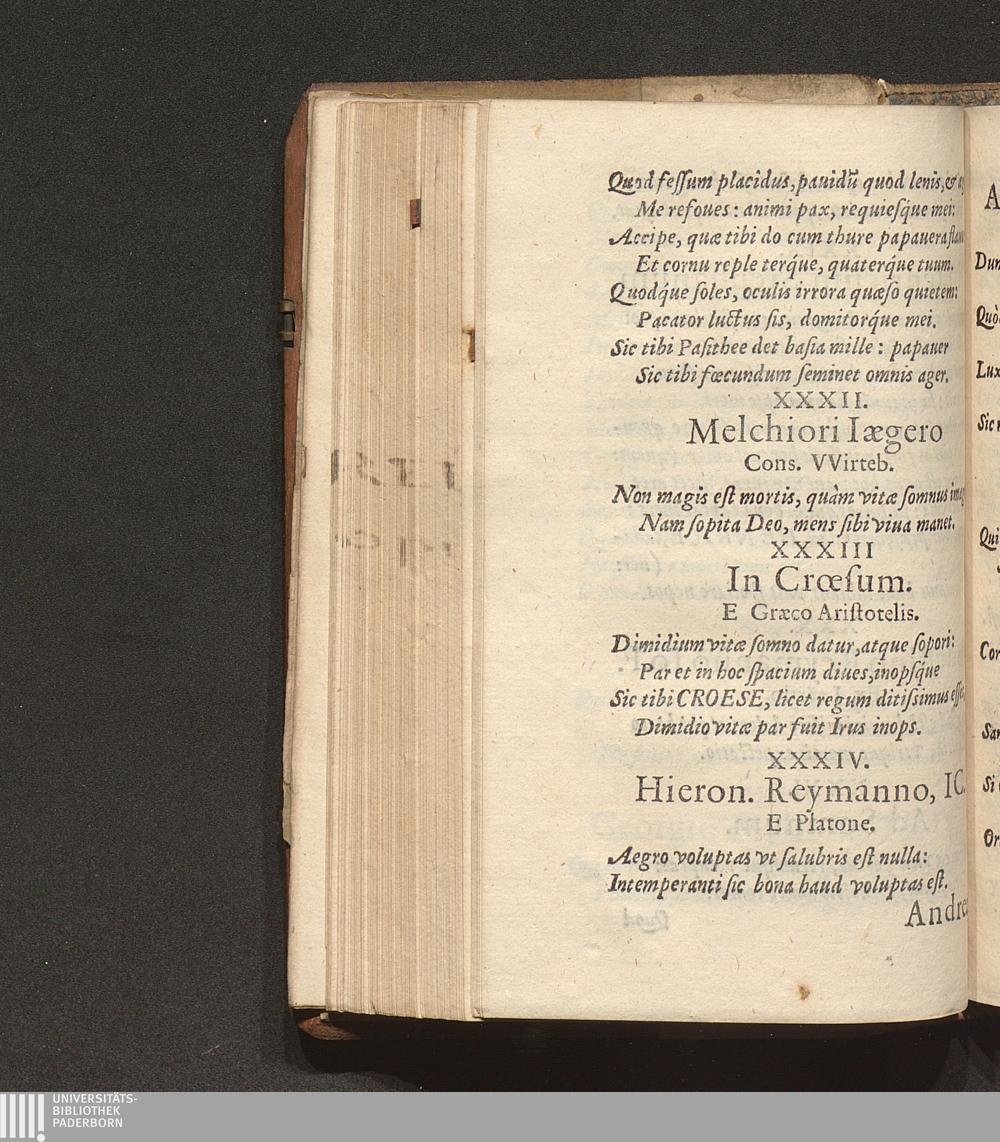 Quod feſſum placidus, pauidū quod lenis, &
Me refoues: animi pax, requieſq́ue mei:
Accipe, quæ tibi do cum thure papauera
Et cornu reple terq́ue, quaterq́ue tuum.
Quodq́ue ſoles, oculis irrora quæſo quietem:
Pacator luctus ſis, domitorq́ue mei.
Sic tibi Paſithee det baſia mille: papauer
Sic tibi fœcundum ſeminet omnis ager.
XXXII.
Melchiori Iægero
Cons. VVirteb.
Non magis eſt mortis, quàm vitæ ſomnus
Nam ſopita Deo, mens ſibi viua manet.
XXXIII
In Crœſum.
E Græco Ariſtotelis.
Dimidium vitæ ſomno datur, atque ſopori:
Par et in hoc ſpacium diues, inopſq́ue
Sic tibi CROESE, licet regum ditiſsimus
Dimidio vitæ par fuit Irus inops.
XXXIV.
Hieron. Reymanno, IC.
E Platone.
Aegro voluptas vt ſalubris eſt nulla:
Intemperanti ſic bona haud voluptas eſt.
Andre
A
Dum
Quò
Lux
Sic
Qui
Cor
San
Si
Or
UNIVERSITÄTS-
BIBLIOTHEK
PADERBORN